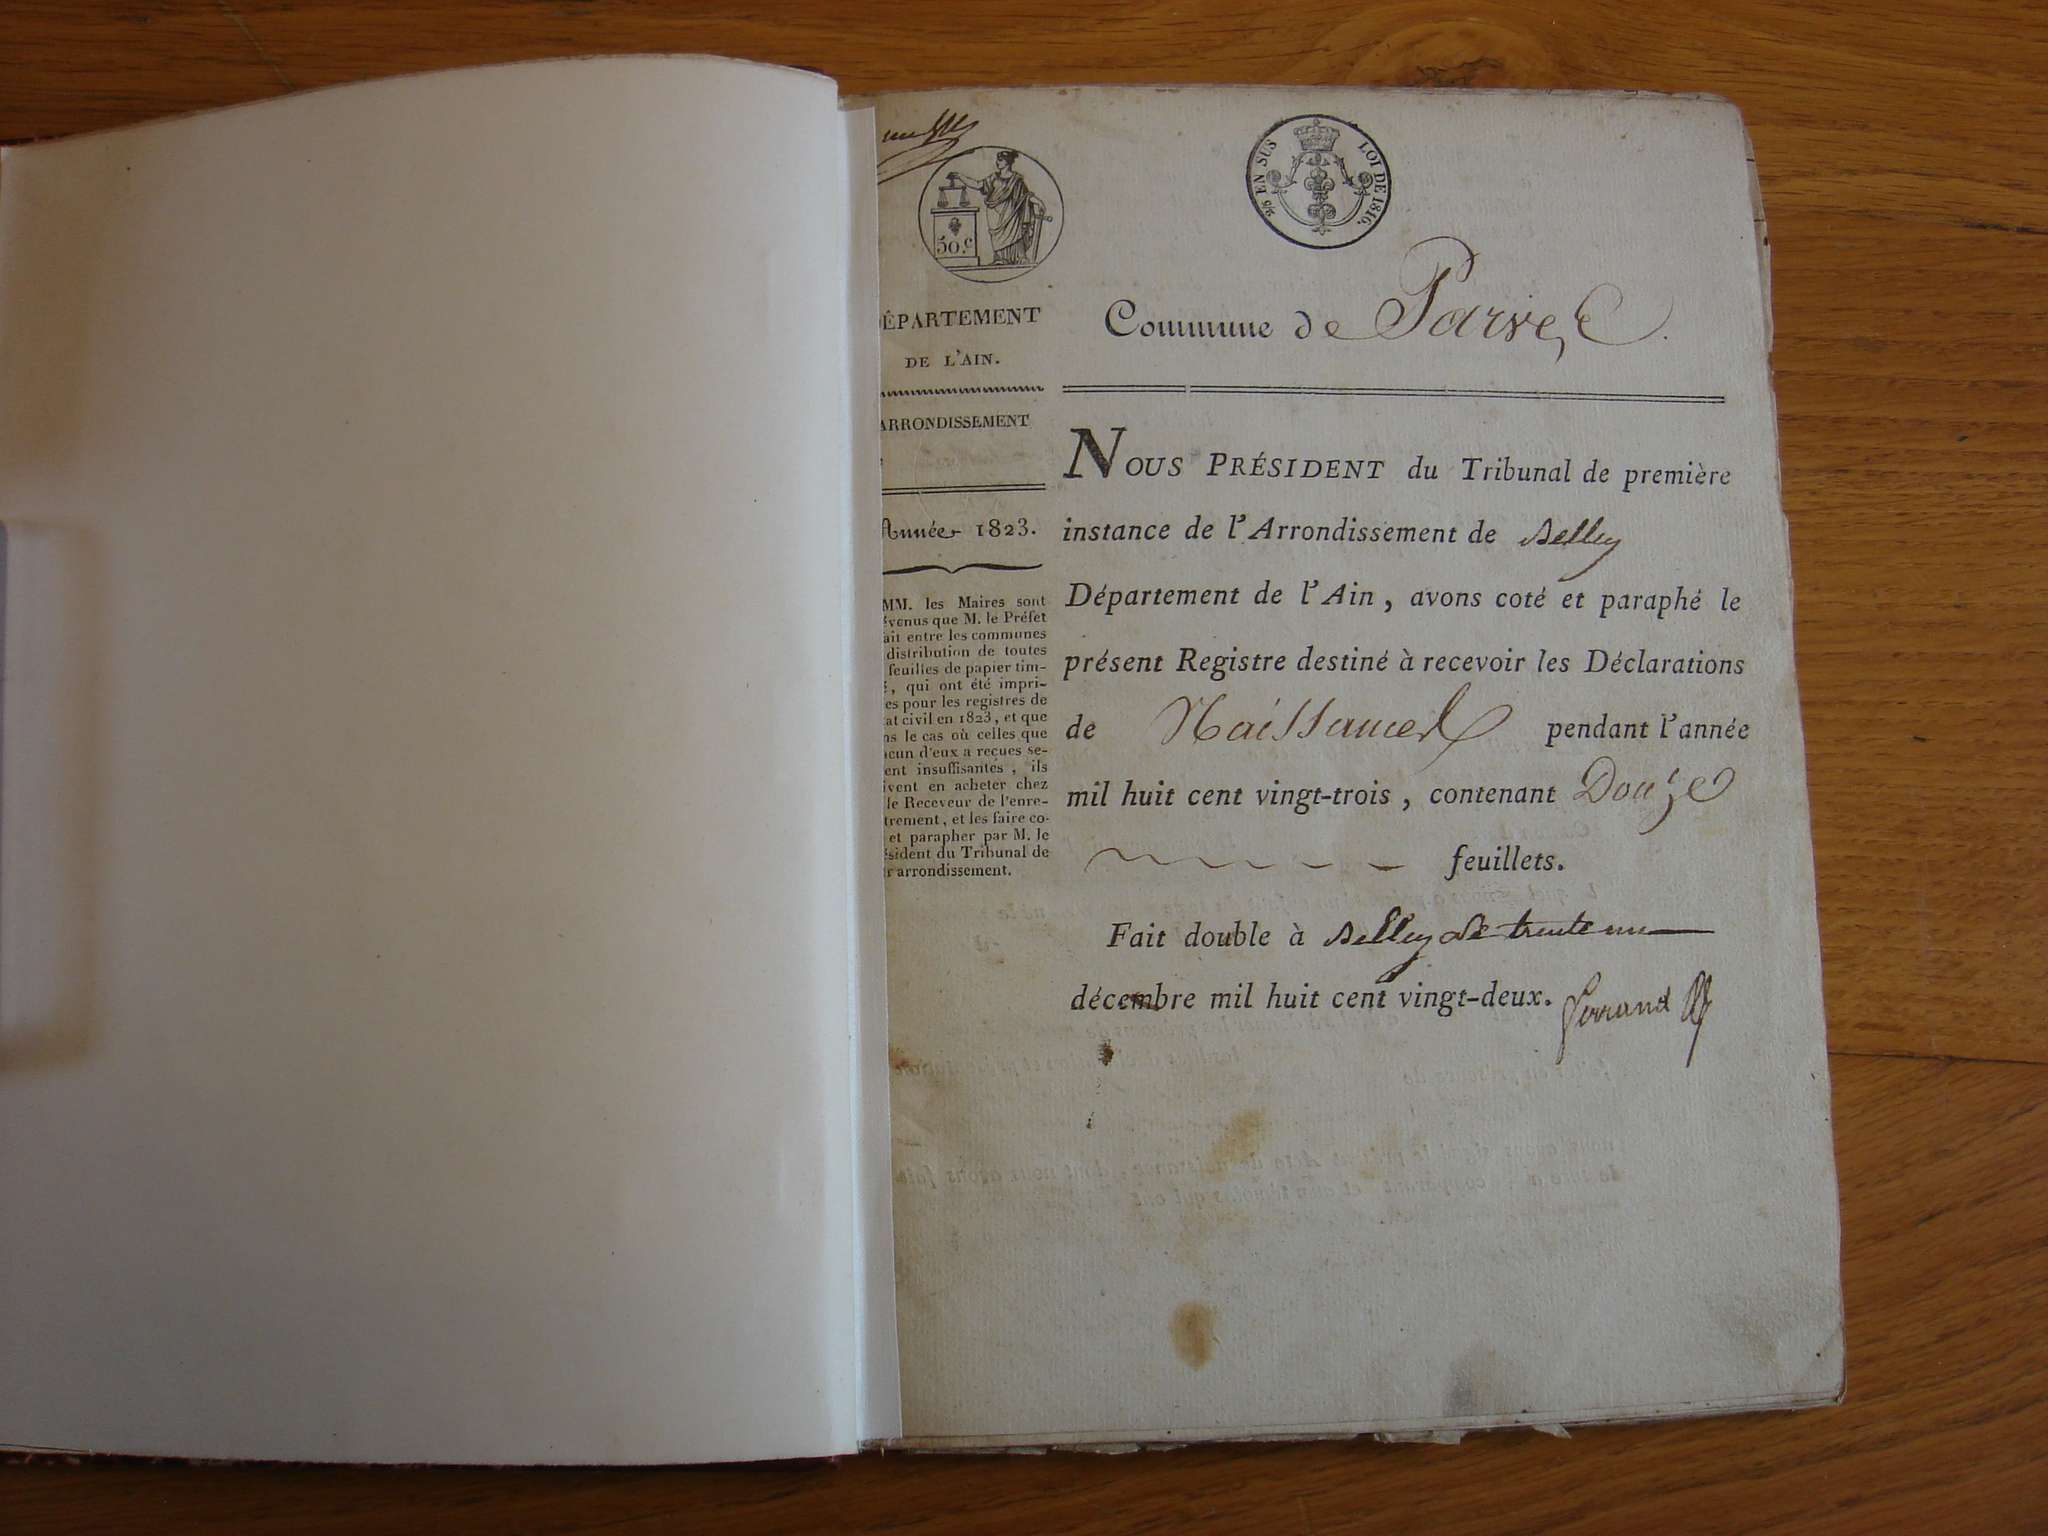 50.c
5/6 EN SUS LOI DE 1816.
ÉPARTEMENT
DE L'AIN.
ARRONDISSEMENT
Année 1823.
MM. les Maires sont
évenus que M. le Préfet
ait entre les communes
distribution de toutes
feuilles de papier tim-
é, qui ont été impri-
es pour les registres de
at civil en 1823, et que
ns le cas où celles que
acun d'eux a reçues se-
ent insuffisantes, ils
ivent en acheter chez
le Receveur de l'enre-
trement, et les faire co-
et parapher par M. le
ésident du Tribunal de
r arrondissement.
Commune de Parves
NOUS PRÉSIDENT du Tribunal de première
instance de l'Arrondissement de Belley
Département de l'Ain, avons coté et paraphé le
présent Registre destiné à recevoir les Déclarations
de Naissances pendant l'année
mil huit cent vingt-trois, contenant Douze
feuillets.
Fait double à Belley le trente un
décembre mil huit cent vingt-deux. Ferrand